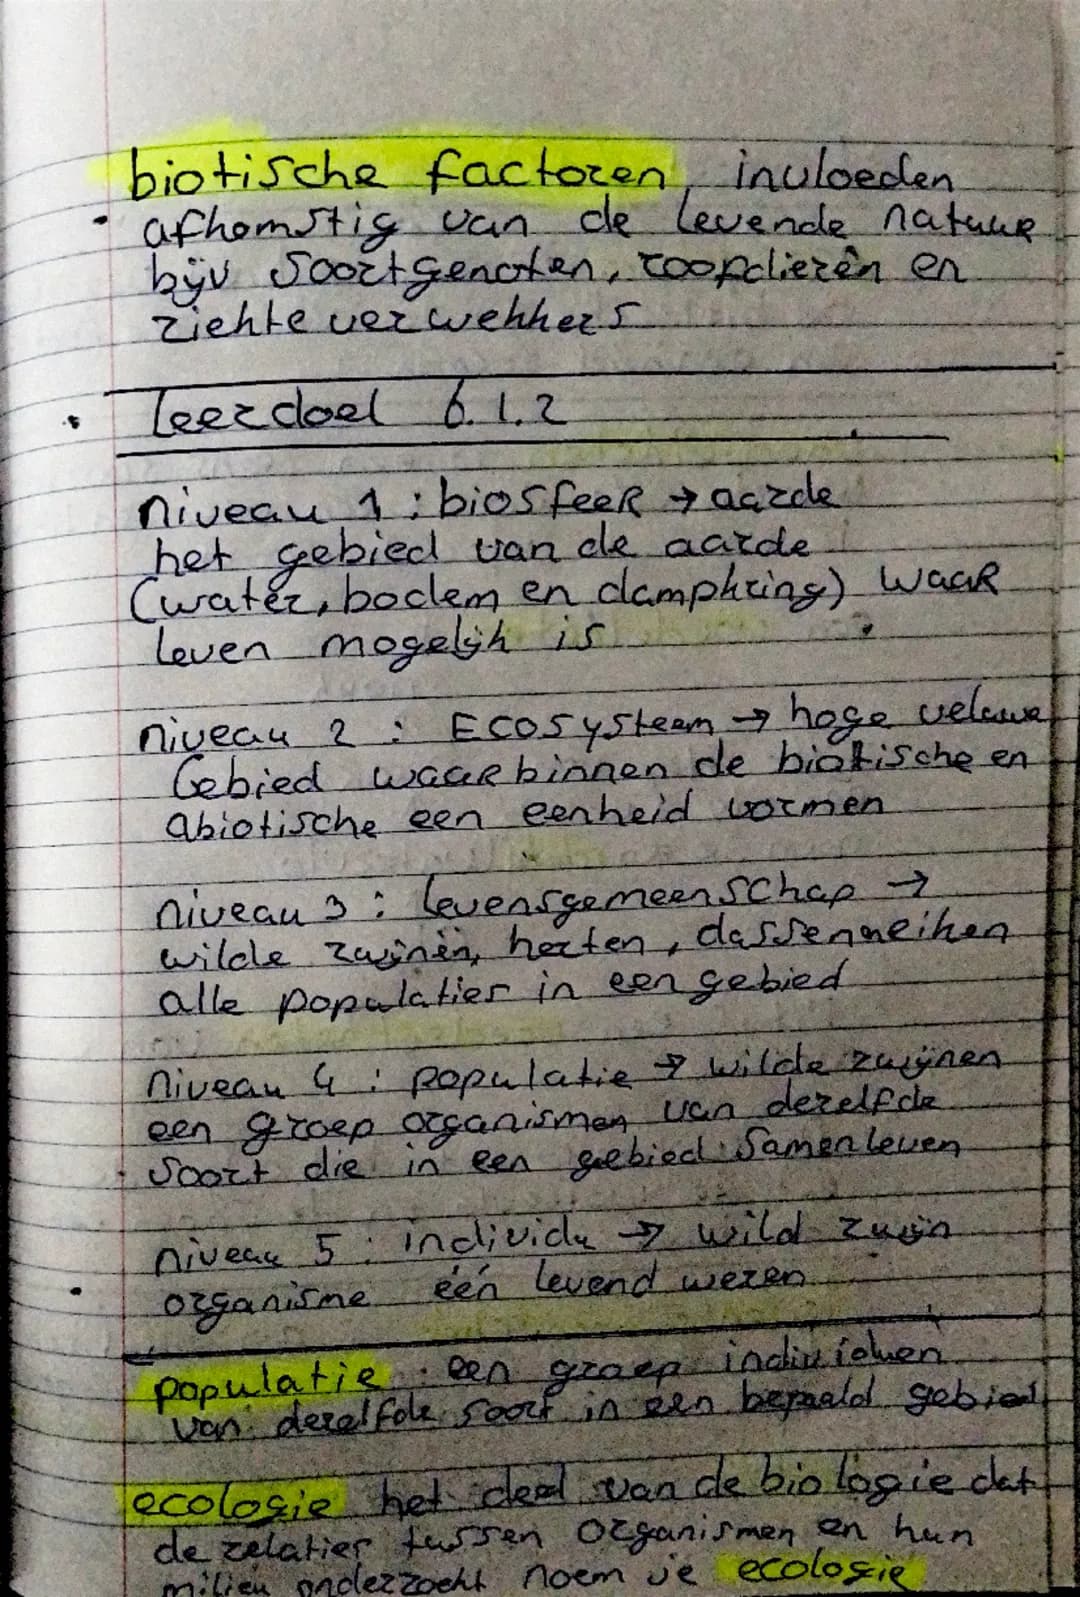 biotische factoren, invloeden
afkomstig van de levende natuur
bijv soortgenoten, roofdieren en
ziekteverwekkers
leerdoel 6.1.2
niveau 1 : biosfeer → aarde
het gebied van de aarde
(water, bodem en dampkring) waar
leven mogelijk is
niveau 2 : Ecosysteem → hoge veluwe
Gebied waarbinnen de biotische en
abiotische een eenheid vormen
niveau 3 : levensgemeenschap →
wilde zwijnen, herten, dassen eiken
alle populaties in een gebied
niveau 4 : populatie → wilde zwijnen
een groep organismen van dezelfde
soort die in een gebied samenleven
niveau 5 : individu → wild zwijn
organisme één levend wezen
populatie : een groep individuen
van dezelfde soort in een bepaald gebied
ecologie het deel van de biologie dat
de relaties tussen organismen en hun
milieu onderzoekt noem je ecologie